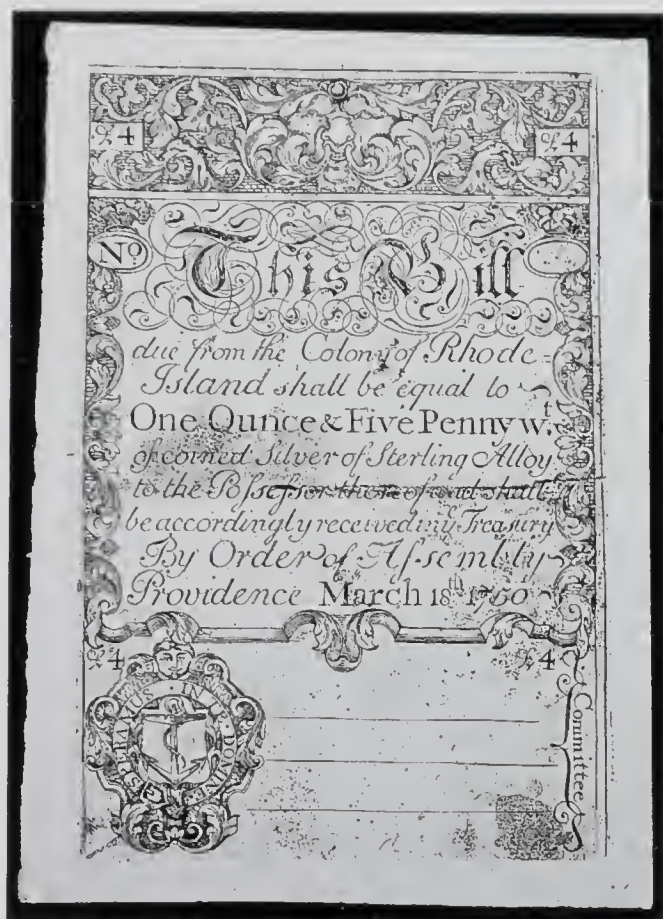 ₰4 ₰4
No
This Bill
due from the Colony of Rhode-
Island shall be equal to
One Ounce & Five Pennyw.t
of coined Silver of Sterling Alloy
to the Possessor thereof and shall
be accordingly received in ye Treasury
By Order of Assembly
Providence March 18th 1750
₰4 ₰4
IN TE DOMINE SPERAMUS
Committee